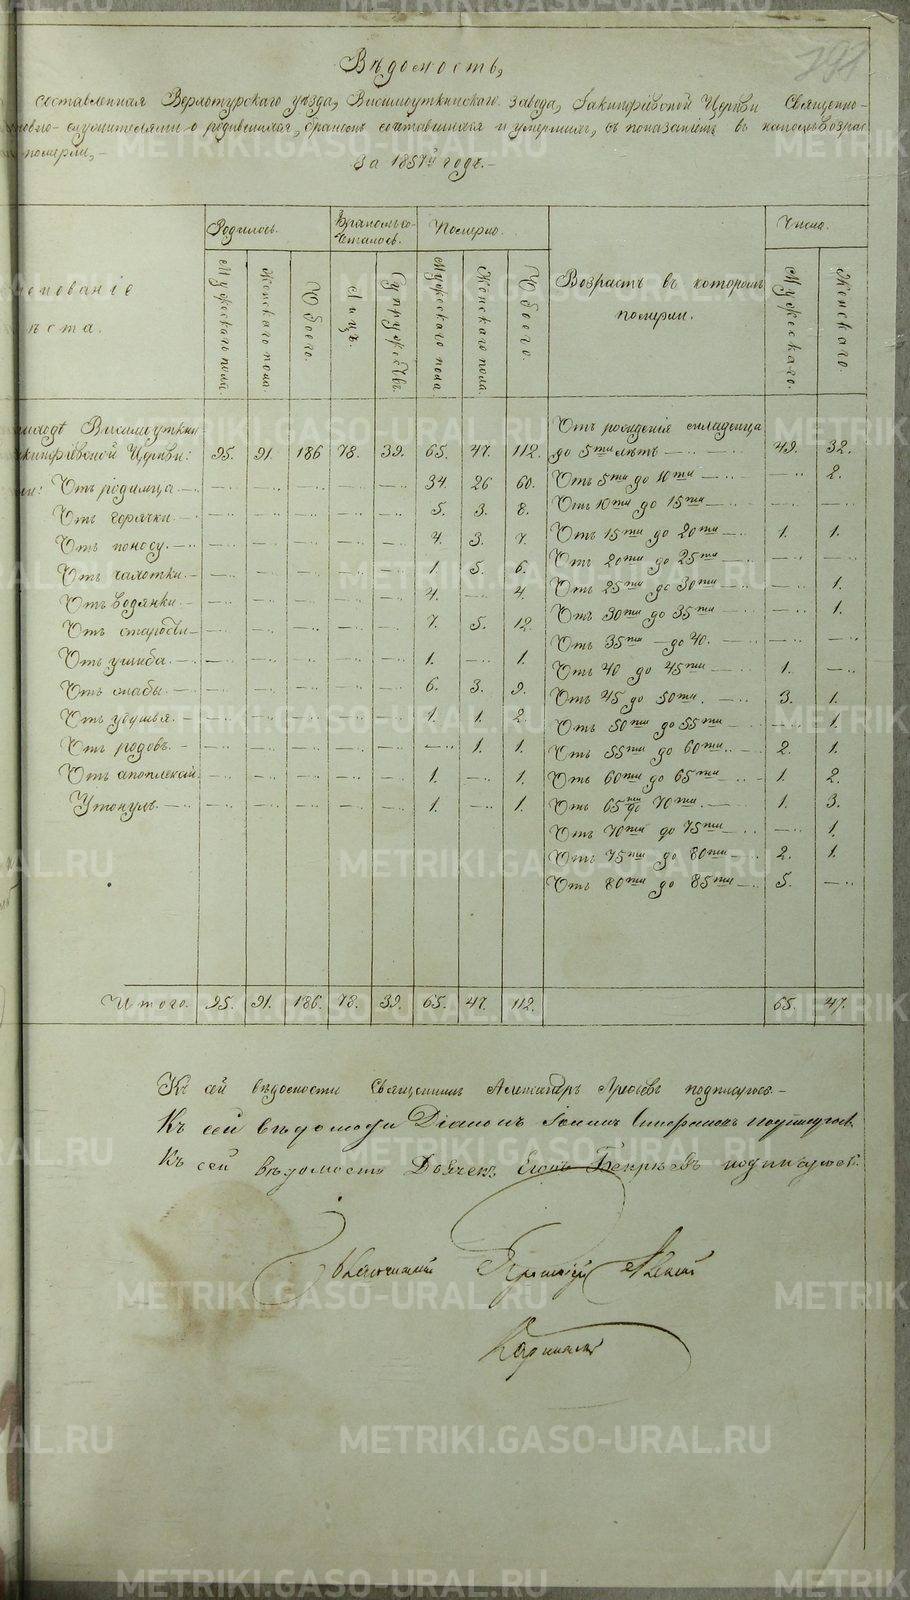 Вѣдомость,
составленная Верхотурскаго уѣзда, Висимоуткинскаго завода, Церкви Священно-
служителями о родившихся, бракомъ сочетавшихся и умершихъ, съ показаніемъ въ
померли,-
За 1857й годъ.-
Родилось.
Бракомъ со-
четалось.
Померло.
Число.
Мужескаго пола.
Женскаго пола.
Обоего.
Лицъ.
Супружествъ.
Мужескаго пола
Женскаго пола.
Обоего.
Возрастъ въ которомъ
померли.
Мужескаго.
Женскаго.
нованіе
ѣста.
Висимоуткин
Церкви: 95. 91. 186 78. 39. 65. 47. 112.
Отъ родимца 34. 26 60.
Отъ горячки 5. 3. 8.
Отъ поносу 4. 3. 7.
Отъ чахотки 1. 5. 6.
Отъ водянки 4. 4.
Отъ старости 7. 5. 12
Отъ ушиба 1. 1.
Отъ слабы 6. 3. 9.
Отъ удушья 1. 1. 2.
Отъ родовъ 1. 1.
Отъ апоплексіи 1. 1.
Утонулъ 1. 1.
Отъ рожденія младенца
до 5ти лѣтъ 49. 32.
Отъ 5ти до 10ти 2.
Отъ 10ти до 15ти
Отъ 15ти до 20ти 1. 1.
Отъ 20ти до 25ти
Отъ 25ти до 30ти 1.
Отъ 30ти до 35ти 1.
Отъ 35ти до 40.
Отъ 40 до 45ти 1.
Отъ 45 до 50ти 3. 1.
Отъ 50ти до 55ти 1.
Отъ 55ти до 60ти 2. 1.
Отъ 60ти до 65ти 1. 2.
Отъ 65ти до 70ти 1. 3.
Отъ 70ти до 75ти 1.
Отъ 75ти до 80ти 2. 1.
Отъ 80ти до 85ти 5.
Итого. 95. 91. 186. 78. 39. 65. 47. 112. 65. 47.
Къ сей вѣдомости Священникъ Александръ подписуюсь.-
Къ сей вѣдомости Діаконъ подписуюсь.
Къ сей вѣдомости Дьячекъ подписуюсь.
METRIKI.GASO-URAL.RU